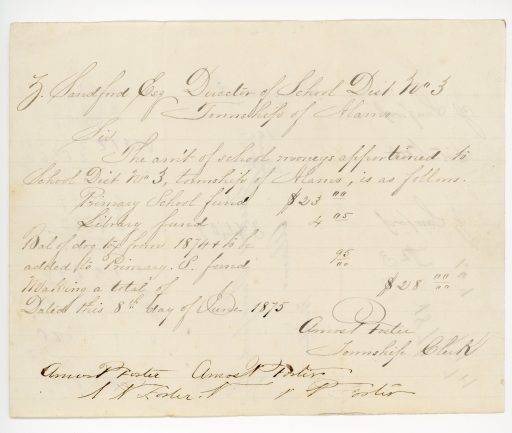 Z. Sandford Esq Director of School Dist No 3
Township of Alamo
Sir
The am't of school moneys apportioned to
School Dist No 3, township of Alamo, is as follows.
Primary School fund $23 00
Library fund 4 05
Bal of dog tax from 1874 to be
added to Primary. S. fund 95
Making a total of $28 00
Dated this 8th day of June 1875
Amos N Foster
Township Clerk
Amos N Foster Amos N Foster
A N Foster N Foster